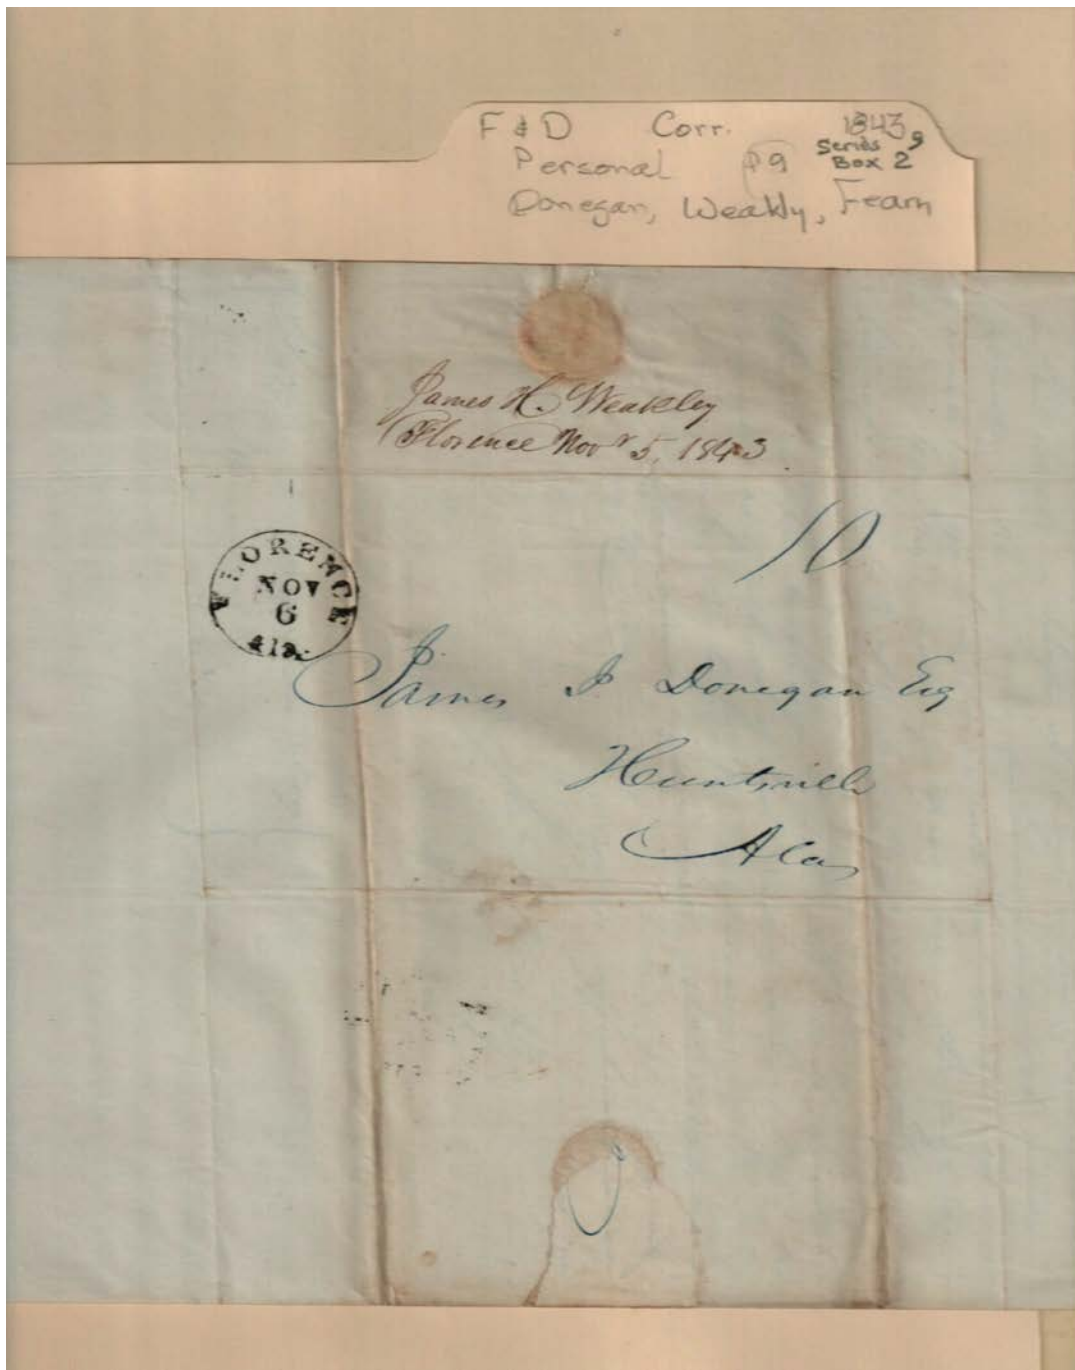 F & D Corr. 1843
Personal P9 Series 9
Box 2
Donegan, Weakly, Fearn
James H. Weakley
Florence Novr 5, 1843.
10
FLORENCE
NOV
6
Ala.
James J Donegan Esq
Huntsville
Ala